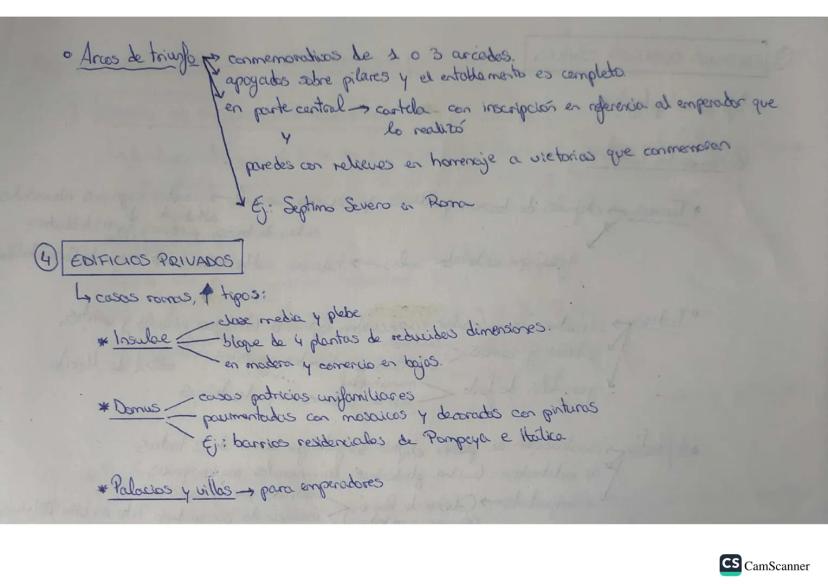 Arcos de triunfo → conmemorativos de 1 o 3 arcadas.
apoyados sobre pilares y el entablamento es completo
en parte central → cartela con inscripción en referencia al emperador que
lo realizó
y
paredes con relieves en homenaje a victorias que conmemoran
Ej: Septimo Severo en Roma
4 EDIFICIOS PRIVADOS
↳ casas romas, ↑ tipos:
clase media y plebe
* Insulae
bloque de 4 plantas de reducidas dimensiones.
en madera y comercio en bajos.
casas patricias unifamiliares
* Domus
pavimentadas con mosaicos y decorados con pinturas
Ej: barrios residenciales de Pompeya e Itálica
* Palacios y villas → para emperadores
CS CamScanner